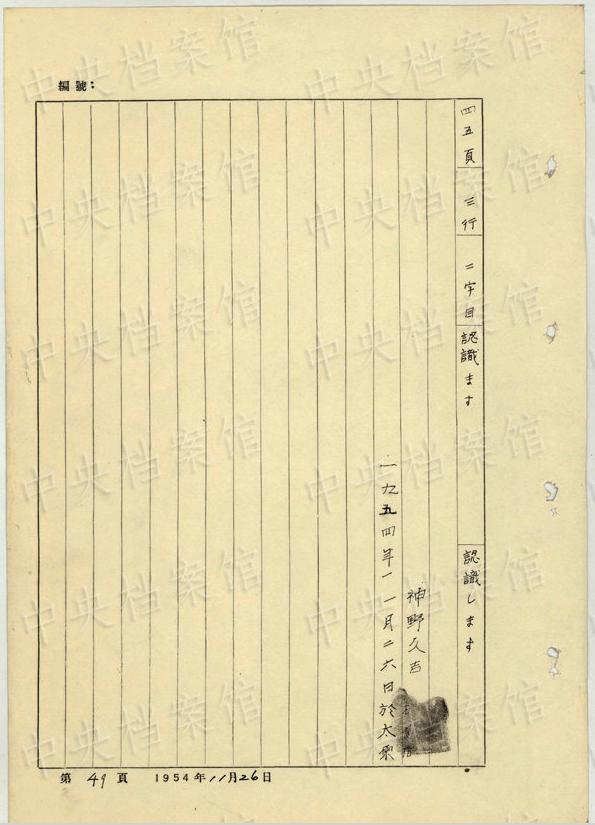 編號：
四五頁 三行 二字目 認識ます 認識します
神野久吉
一九五四年一一月二六日於太原
第49頁 1954年11月26日
中央档案馆